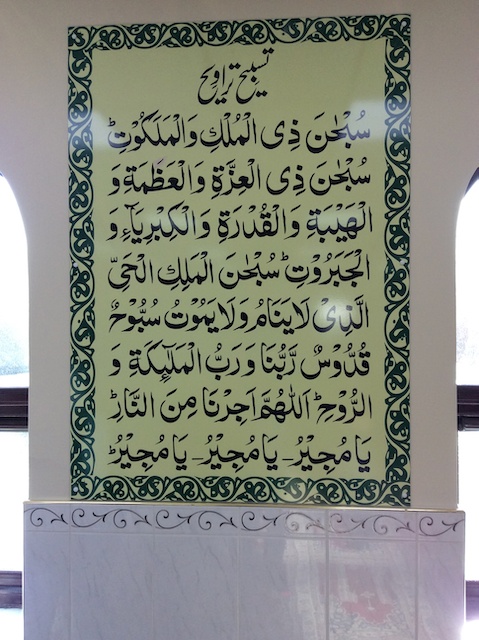 تسبیح تراویح
سُبْحٰنَ ذِی الْمُلْكِ وَالْمَلَكُوْتِ ؕ
سُبْحٰنَ ذِی الْعِزَّةِ وَالْعَظَمَةِ وَ
الْهَيْبَةِ وَالْقُدْرَةِ وَالْكِبْرِيَآءِ وَ
الْجَبَرُوْتِ ؕ سُبْحٰنَ الْمَلِكِ الْحَیِّ
الَّذِیْ لَا يَنَامُ وَلَا يَمُوْتُ سُبُّوْحٌ
قُدُّوْسٌ رَّبُّنَا وَ رَبُّ الْمَلٰٓئِكَةِ وَ
الرُّوْحِ ؕ اَللّٰهُمَّ اَجِرْنَا مِنَ النَّارِ ؕ
يَا مُجِيْرُ ۔ يَا مُجِيْرُ ۔ يَا مُجِيْرُ ؕ